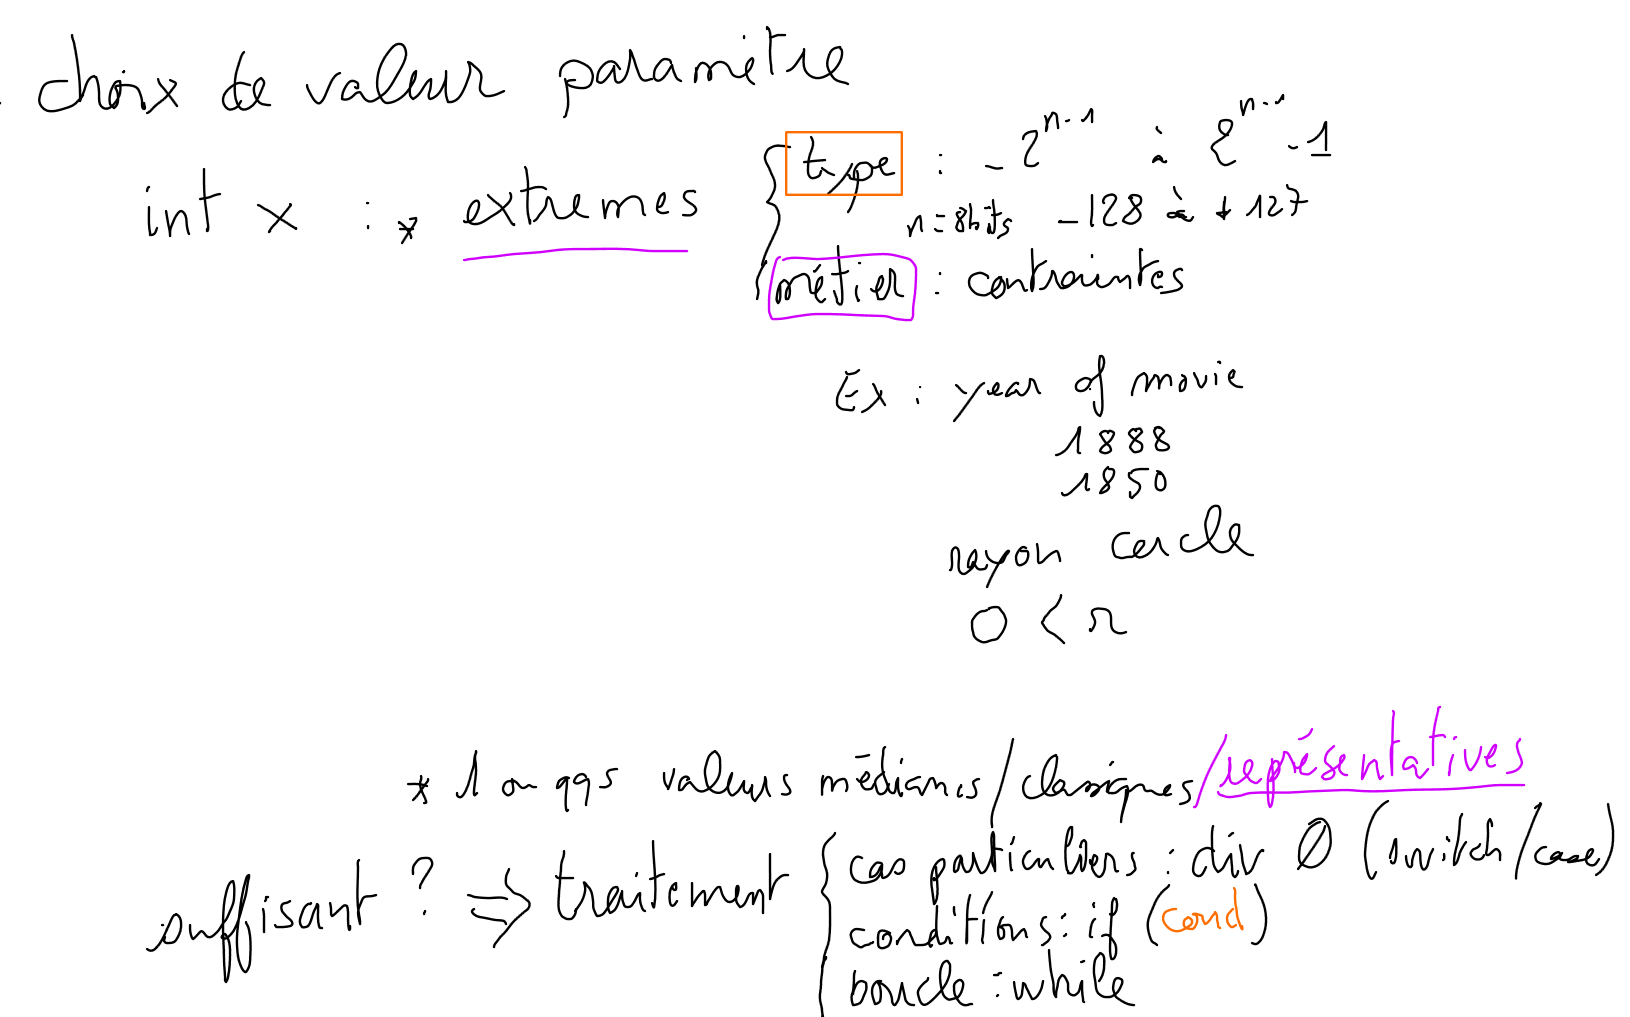 choix de valeur paramètre
int x : * extremes
type : -2^{n-1} à 2^{n-1} -1
n = 8bits -128 à +127
métier : contraintes
Ex : year of movie
1888
1850
rayon cercle
0 < r
* 1 ou qqs valeurs médianes/classiques/représentatives
suffisant ? => traitement
cas particuliers : div 0 (switch/case)
conditions : if (cond)
boucle : while